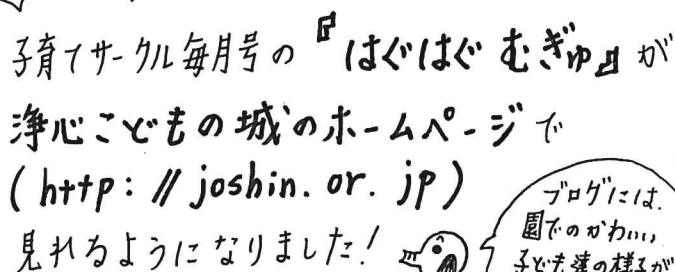 子育てサークル毎月号の『はぐはぐ むぎゅ』が
浄心こどもの城のホームページで
(http://joshin.or.jp)
見れるようになりました!
ブログには、
園でのかわいい
子ども達の様子が